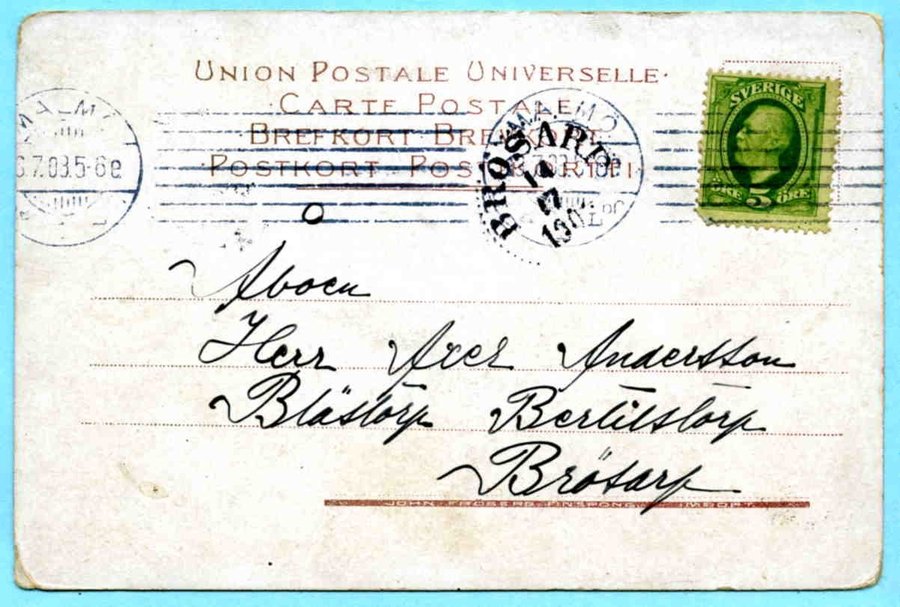 UNION POSTALE UNIVERSELLE.
CARTE POSTALE
BREFKORT BREFKORT
POSTKORT POSTKORTI
MALMÖ
6.7.03.5-6e
MALMÖ
BRÖSARP
7
190
SVERIGE
ÖRE 5 ÖRE
Åboen
Herr Axel Andersson
Blästorp Bertilstorp
Brösarp
JOHN FRÖBERG FINSPONG. IMPORT.